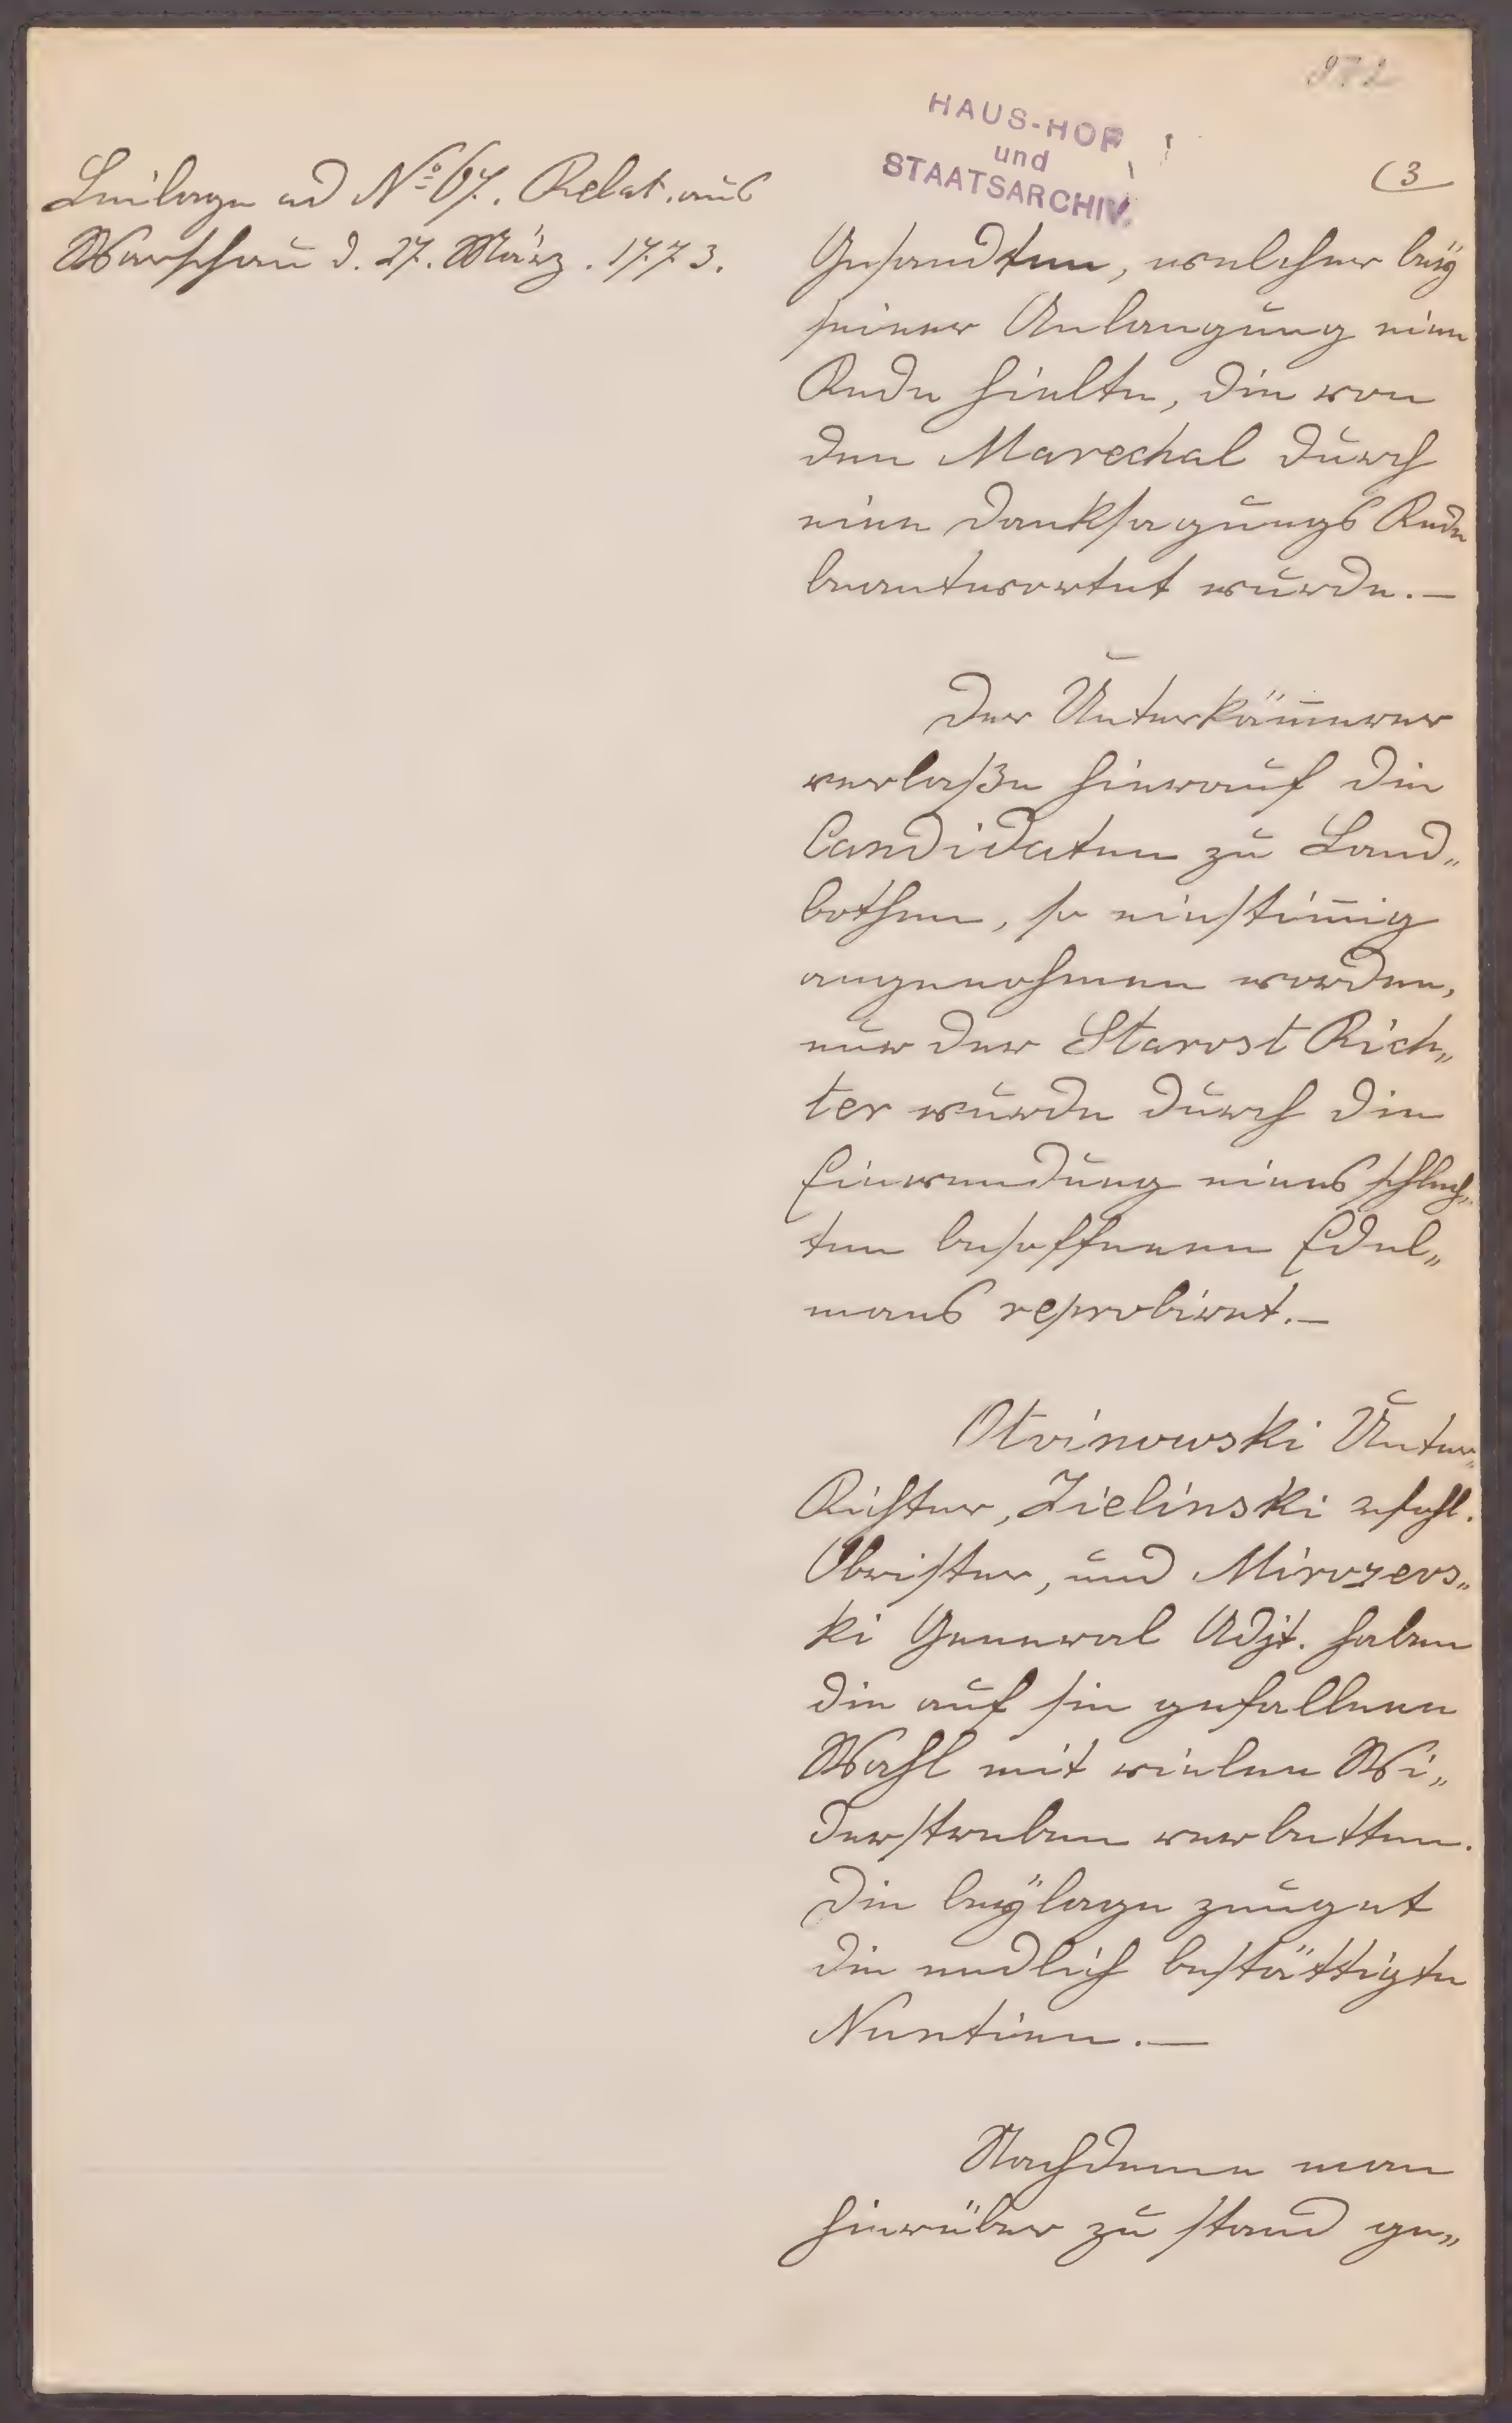 972
HAUS-HOF
und
STAATSARCHIV.
(3
Beilage ad No 67. Relat. aus
Warschau d. 27. März. 1773.
Gesandten, welcher beÿ
seiner Anlangung eine
Rede hielte, die von
den Marechal durch
eine Danksagungs Rede
beantwortet wurde.—
Der Unterkäm̄erer
verlaße hierauf die
Candidaten zu Land„
bothen, so einstim̄ig
angenohmen worden,
nur der Starost Rich„
ter wurde durch die
Einwendung eines schlech„
ten besoffenen Edel„
mans reprobiret.—
Otvinowski Unter„
Richter, Zielinski
Obrister, und Mirozews„
ki General Adjt. haben
die auf sie gefallene
Wahl mit vielen Wi„
derstreben verbetten.
Die beÿlage zeuget
die endlich bestättigte
Nuntien.—
Nachdeme man
hierüber zu stand ge„